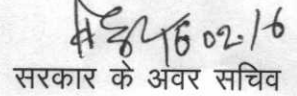 02.16
सरकार के अवर सचिव